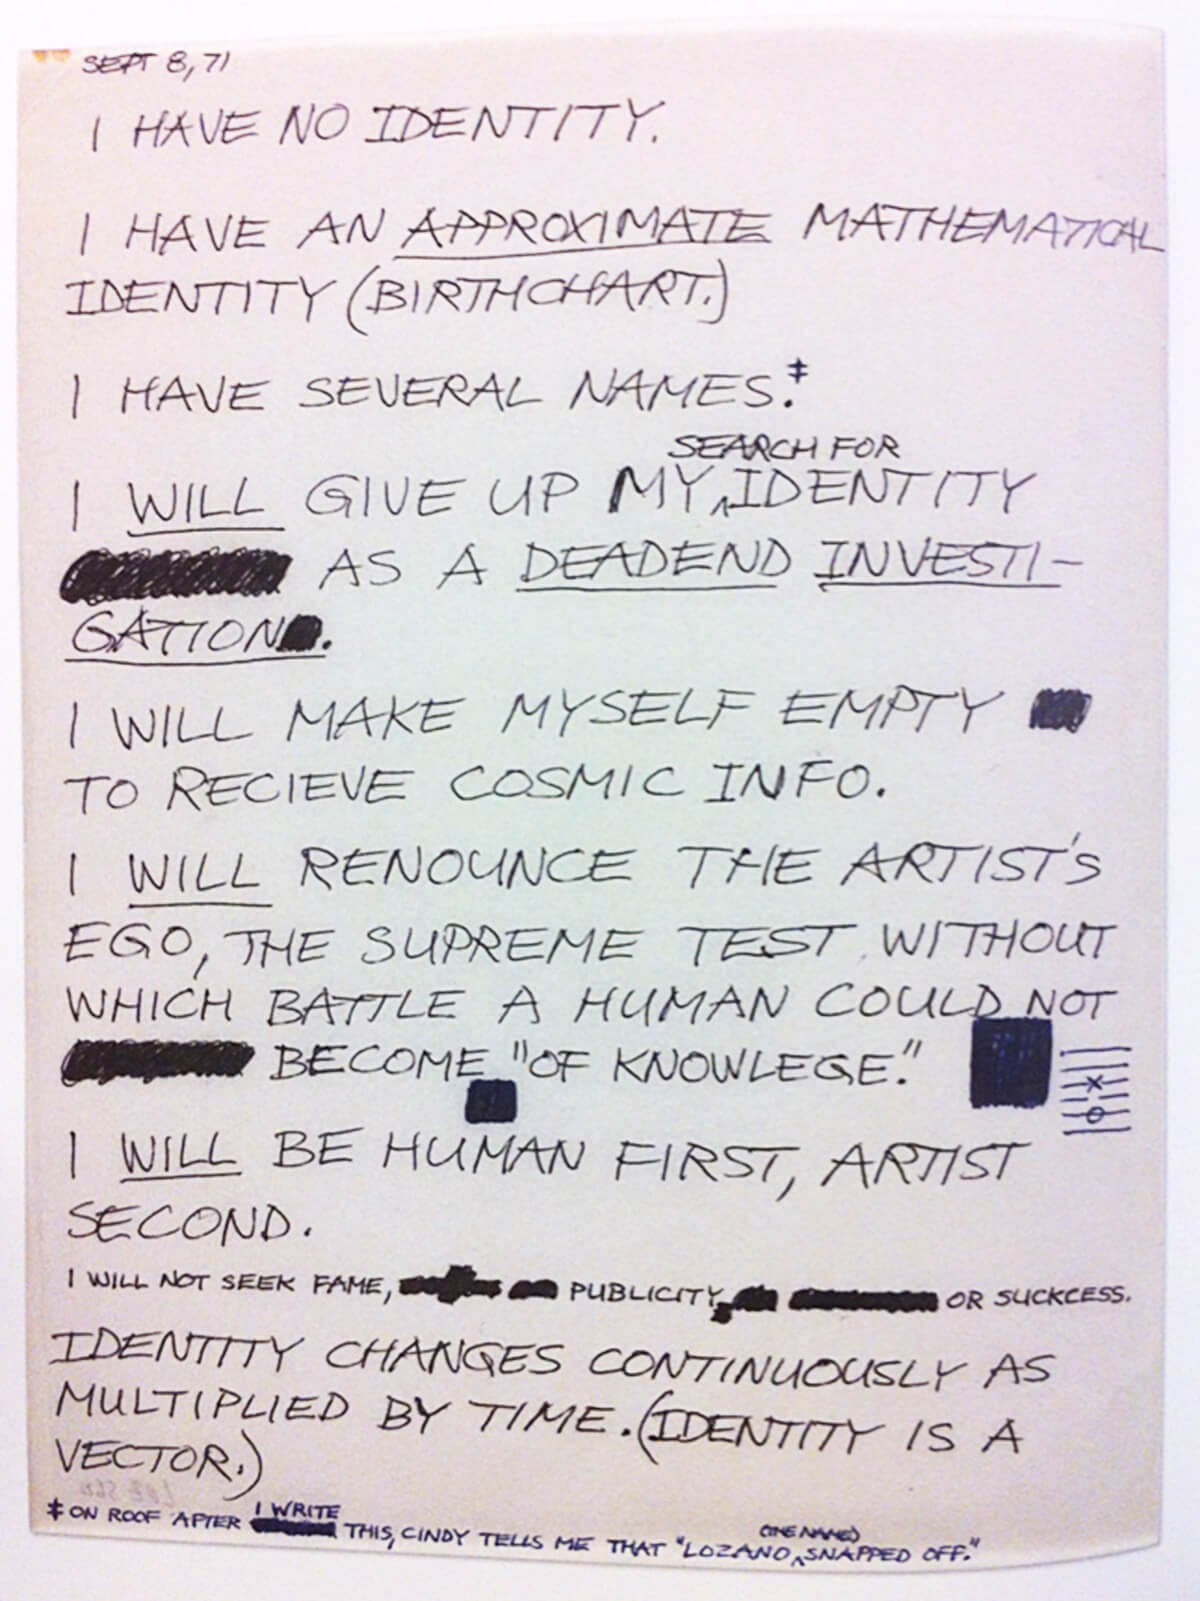 SEPT 8, 71
I HAVE NO IDENTITY.
I HAVE AN APPROXIMATE MATHEMATICAL
IDENTITY (BIRTHCHART.)
I HAVE SEVERAL NAMES.‡
SEARCH FOR
I WILL GIVE UP MY ^ IDENTITY
AS A DEADEND INVESTI-
GATION.
I WILL MAKE MYSELF EMPTY
TO RECIEVE COSMIC INFO.
I WILL RENOUNCE THE ARTIST'S
EGO, THE SUPREME TEST WITHOUT
WHICH BATTLE A HUMAN COULD NOT
BECOME "OF KNOWLEGE."
I WILL BE HUMAN FIRST, ARTIST
SECOND.
I WILL NOT SEEK FAME, PUBLICITY, OR SUCKCESS.
IDENTITY CHANGES CONTINUOUSLY AS
MULTIPLIED BY TIME. (IDENTITY IS A
VECTOR.)
I WRITE
(ONE NAME)
‡ ON ROOF AFTER THIS, CINDY TELLS ME THAT "LOZANO ^ SNAPPED OFF."